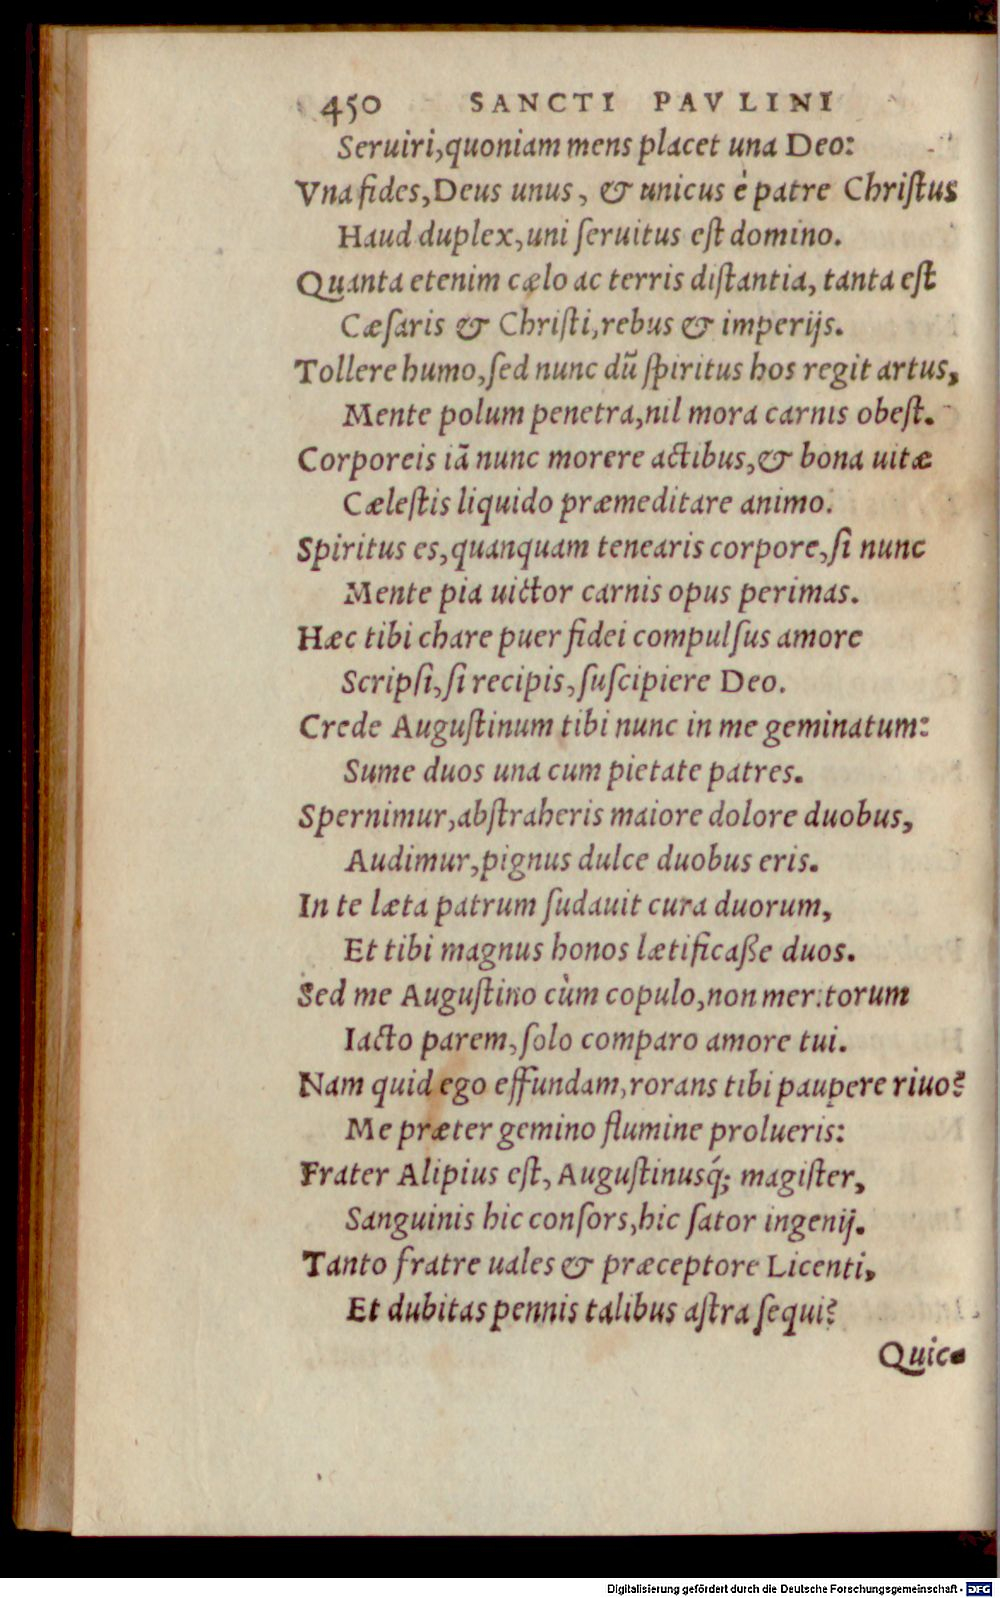 450 SANCTI PAVLINI
Seruiri,quoniam mens placet una Deo:
Vna fides,Deus unus, & unicus è patre Christus
Haud duplex,uni seruitus est domino.
Quanta etenim cælo ac terris distantia, tanta est
Cæsaris & Christi,rebus & imperijs.
Tollere humo,sed nunc dũ spiritus hos regit artus,
Mente polum penetra,nil mora carnis obest.
Corporeis iã nunc morere actibus,& bona uitæ
Cælestis liquido præmeditare animo.
Spiritus es,quanquam tenearis corpore,si nunc
Mente pia uictor carnis opus perimas.
Hæc tibi chare puer fidei compulsus amore
Scripsi,si recipis,suscipiere Deo.
Crede Augustinum tibi nunc in me geminatum:
Sume duos una cum pietate patres.
Spernimur,abstraheris maiore dolore duobus,
Audimur,pignus dulce duobus eris.
In te læta patrum sudauit cura duorum,
Et tibi magnus honos lætificaße duos.
Sed me Augustino cùm copulo,non meritorum
Iacto parem,solo comparo amore tui.
Nam quid ego effundam,rorans tibi paupere riuo?
Me præter gemino flumine prolueris:
Frater Alipius est, Augustinusq́; magister,
Sanguinis hic consors,hic sator ingenij.
Tanto fratre uales & præceptore Licenti,
Et dubitas pennis talibus astra sequi?
Quic-
Digitalisierung gefördert durch die Deutsche Forschungsgemeinschaft - DFG